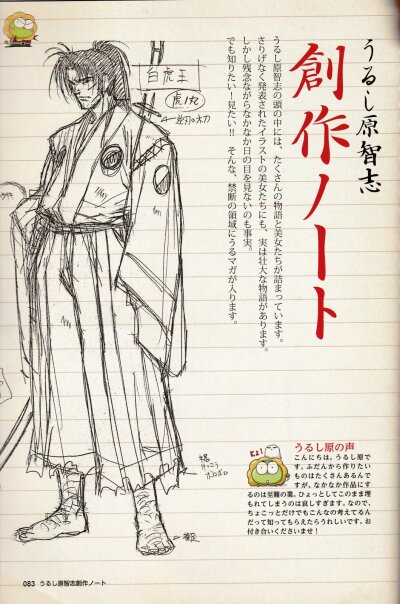 うるし原智志
創作ノート
うるし原智志の頭の中には、たくさんの物語と美女たちが詰まっています。
さりげなく発表されたイラストの美女たちにも、実は壮大な物語があります。
しかし残念ながらなかなか日の目を見ないのも事実。
でも知りたい！見たい!! そんな、禁断の領域にうるマガが入ります。
白虎王
虎ノ丸
うるし原の声
こんにちは。うるし原で
す。ふだんから作りたい
ものはたくさんあるんで
すが、なかなか作品にす
るのは至難の業。ひょっとしてこのまま埋
もれてしまうのは哀しすぎます。なので、
ちょこっとだけでもこんなの考えてるん
だって知ってもらえたらうれしいです。お
付き合いくださいませ！
083 うるし原智志創作ノート